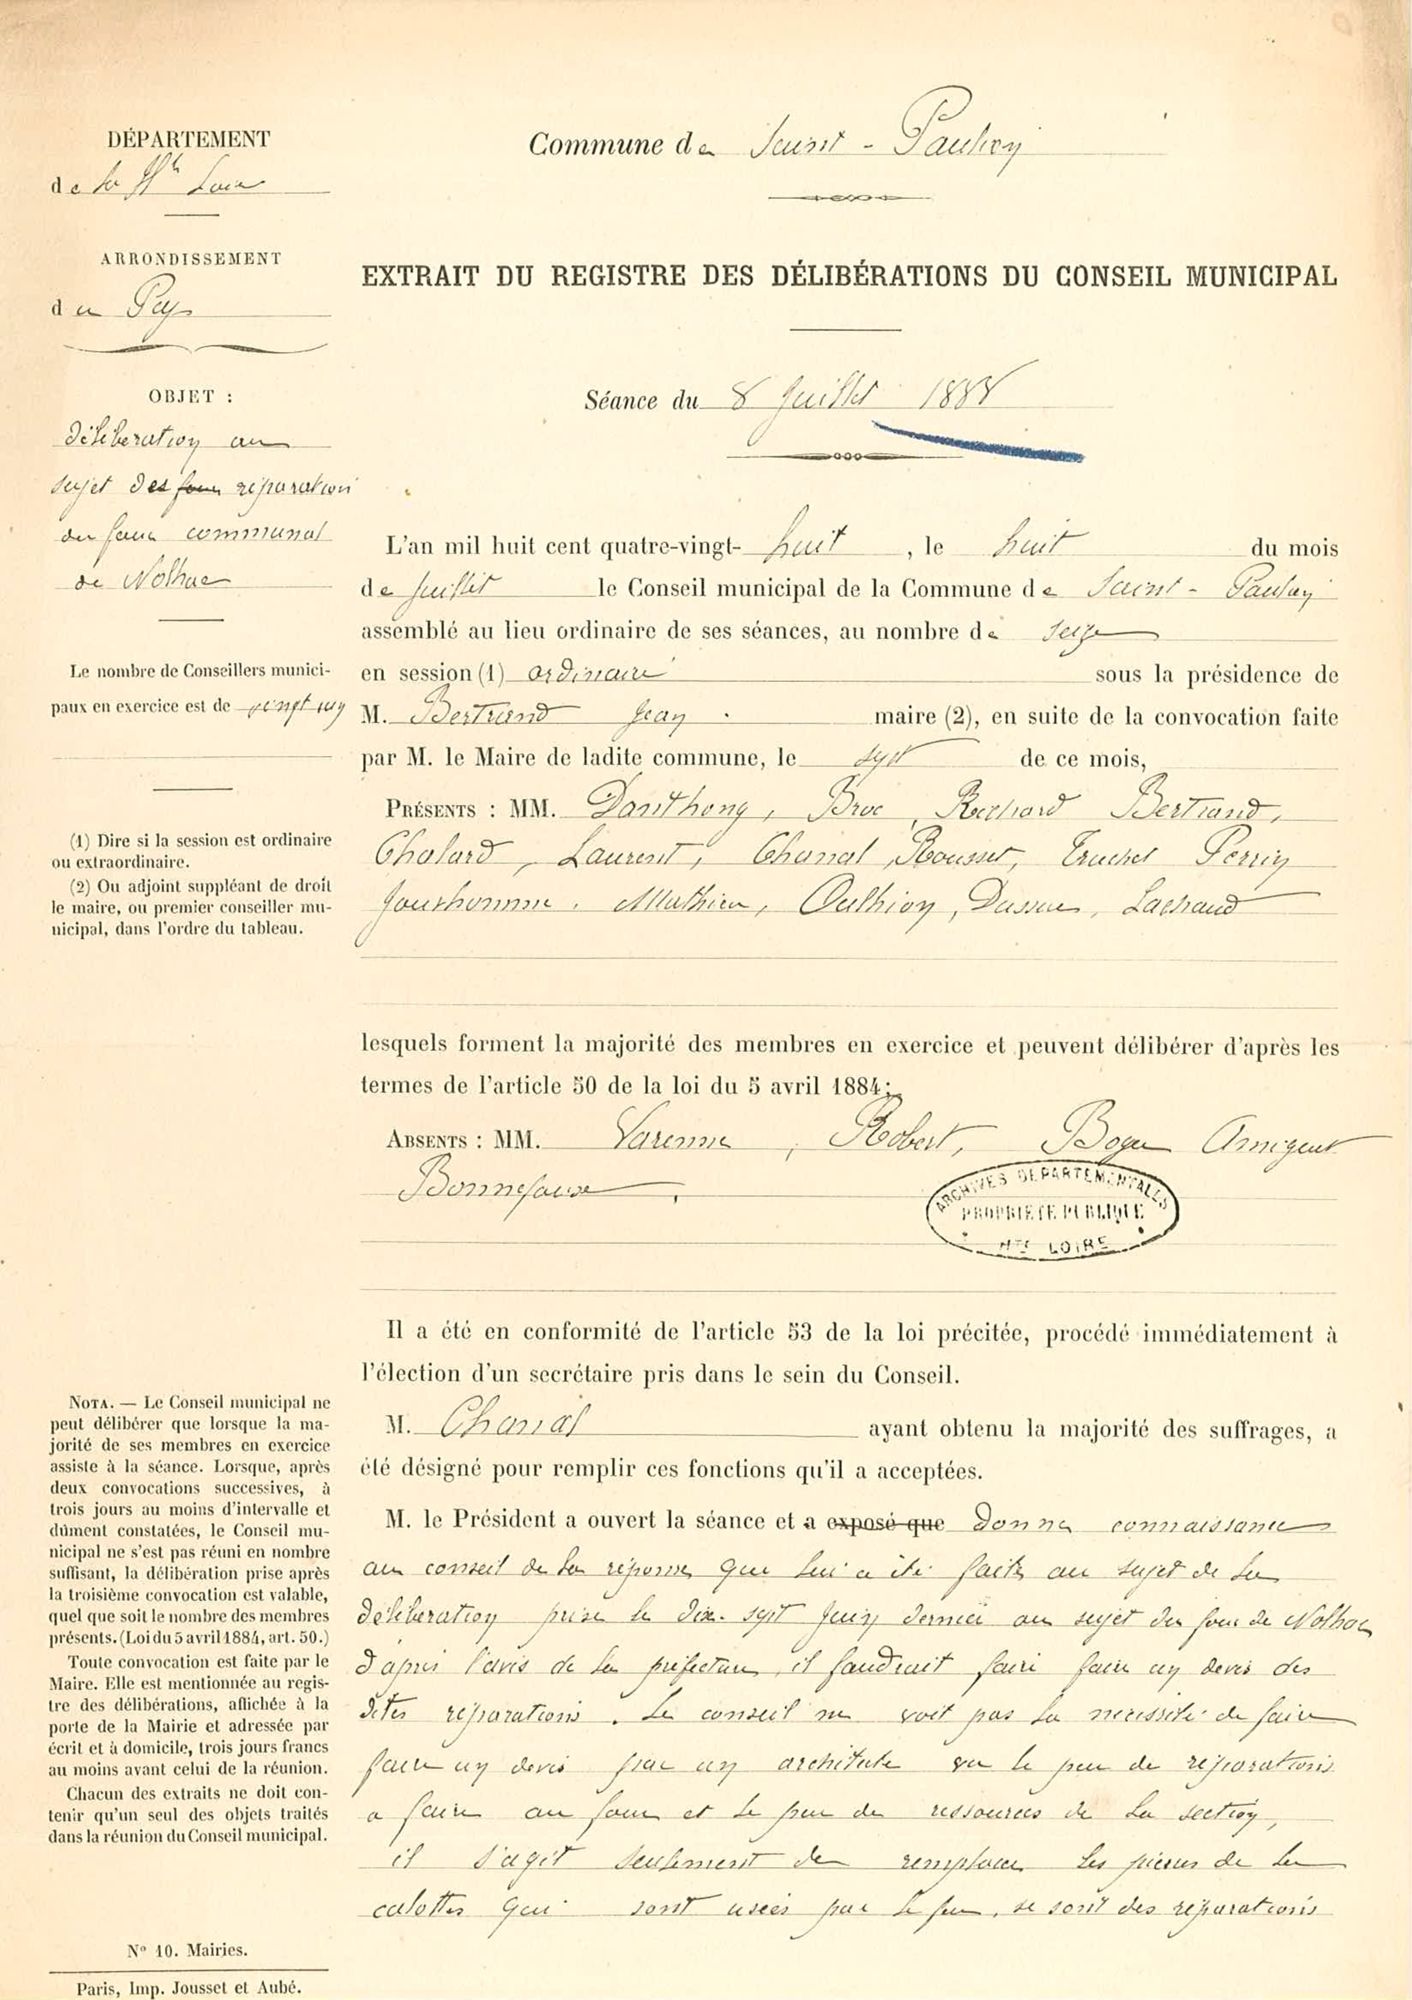 DÉPARTEMENT
de la Hte Loire
ARRONDISSEMENT
du Puy
OBJET :
délibération au
sujet des four réparation
du four communal
de Nolhac
Le nombre de Conseillers munici-
paux en exercice est de vingt un
(1) Dire si la session est ordinaire
ou extraordinaire.
(2) Ou adjoint suppléant de droit
le maire, ou premier conseiller mu-
nicipal, dans l'ordre du tableau.
NOTA. — Le Conseil municipal ne
peut délibérer que lorsque la ma-
jorité de ses membres en exercice
assiste à la séance. Lorsque, après
deux convocations successives, à
trois jours au moins d'intervalle et
dûment constatées, le Conseil mu-
nicipal ne s'est pas réuni en nombre
suffisant, la délibération prise après
la troisième convocation est valable,
quel que soit le nombre des membres
présents. (Loi du 5 avril 1884, art. 50.)
Toute convocation est faite par le
Maire. Elle est mentionnée au regis-
tre des délibérations, affichée à la
porte de la Mairie et adressée par
écrit et à domicile, trois jours francs
au moins avant celui de la réunion.
Chacun des extraits ne doit con-
tenir qu'un seul des objets traités
dans la réunion du Conseil municipal.
N° 10. Mairies.
Paris, Imp. Jousset et Aubé.
Commune de Saint-Paulien
EXTRAIT DU REGISTRE DES DÉLIBÉRATIONS DU CONSEIL MUNICIPAL
Séance du 8 Juillet 1888
L'an mil huit cent quatre-vingt- huit, le huit du mois
de Juillet le Conseil municipal de la Commune de Saint-Paulien
assemblé au lieu ordinaire de ses séances, au nombre de seize
en session (1) ordinaire sous la présidence de
M. Bertrand Jean maire (2), en suite de la convocation faite
par M. le Maire de ladite commune, le sept de ce mois,
PRÉSENTS : MM. Danthony, Broc, Richard Bertrand,
Chalard, Laurent, Chanal, Rousset, Truchet Perrin
Jourhomme, Mathieu, Oulhion, Dassac, Lashaud
lesquels forment la majorité des membres en exercice et peuvent délibérer d'après les
termes de l'article 50 de la loi du 5 avril 1884;
ABSENTS : MM. Varenne, Robert, Boyer Amigeut
Bonnefoux,
ARCHIVES DÉPARTEMENTALES
PROPRIÉTÉ PUBLIQUE
HTE LOIRE
Il a été en conformité de l'article 53 de la loi précitée, procédé immédiatement à
l'élection d'un secrétaire pris dans le sein du Conseil.
M. Chanal ayant obtenu la majorité des suffrages, a
été désigné pour remplir ces fonctions qu'il a acceptées.
M. le Président a ouvert la séance et a exposé que donne connaissance
au conseil de la réponse que lui a été faite au sujet de la
délibération prise le dix-sept Juin dernier au sujet du four de Nolhac
d'après l'avis de la préfecture, il faudrait faire faire un devis des
dites réparations. Le conseil ne voit pas la nécessité de faire
faire un devis par un architecte vu le peu de réparations
a faire au four et le peu de ressources de la section,
il s'agit seulement de remplacer les pierres de la
calotte qui sont usées par le feu, se sont des réparations